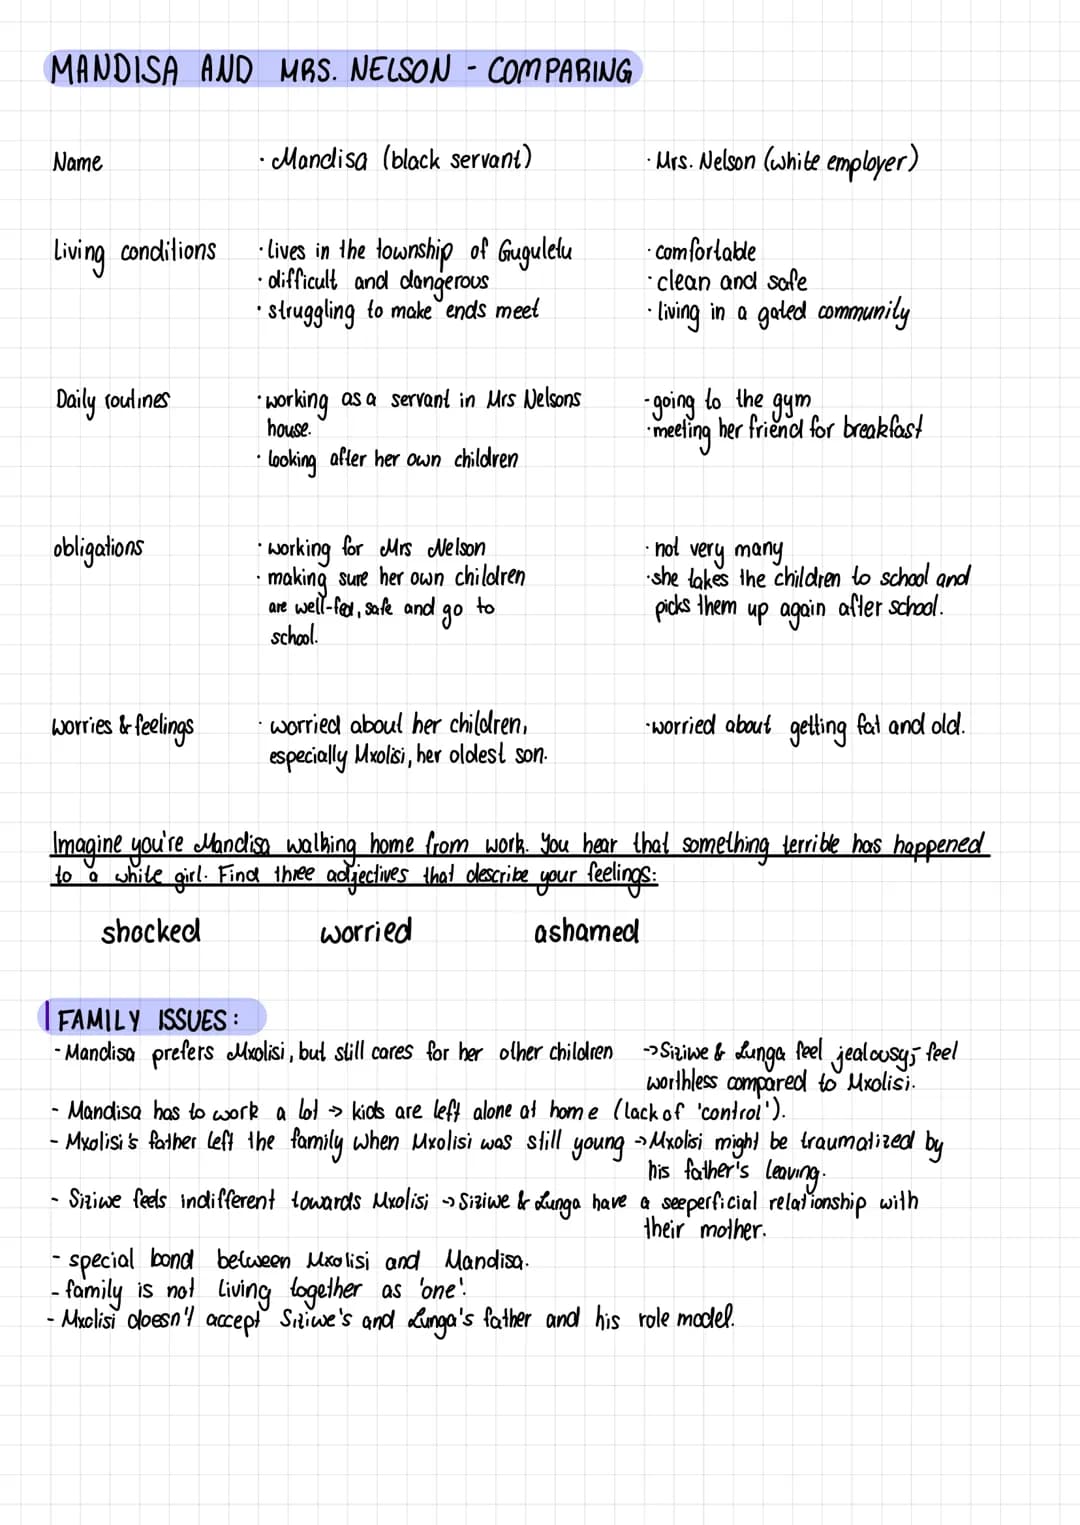 MANDISA AND MRS. NELSON - COMPARING
Name · Mandisa (black servant) · Mrs. Nelson (white employer)
Living conditions · lives in the township of Guguletu · comfortable
· difficult and dangerous · clean and safe
· struggling to make ends meet · living in a gated community
Daily routines · working as a servant in Mrs Nelsons - going to the gym
house. · meeting her friend for breakfast
· looking after her own children
obligations · working for Mrs Nelson · not very many
· making sure her own children · she takes the children to school and
are well-fed, safe and go to picks them up again after school.
school.
worries & feelings · worried about her children, · worried about getting fat and old.
especially Mxolisi, her oldest son.
Imagine you're Mandisa walking home from work. You hear that something terrible has happened
to a white girl. Find three adjectives that describe your feelings:
shocked worried ashamed
FAMILY ISSUES:
- Mandisa prefers Mxolisi, but still cares for her other children -> Siziwe & Lunga feel jealousy; feel
worthless compared to Mxolisi.
- Mandisa has to work a lot -> kids are left alone at home (lack of 'control').
- Mxolisi's father left the family when Mxolisi was still young -> Mxolisi might be traumatized by
his father's leaving.
- Siziwe feels indifferent towards Mxolisi -> Siziwe & Lunga have a seeperficial relationship with
their mother.
- special bond between Mxolisi and Mandisa.
- family is not living together as 'one'.
- Mxolisi doesn't accept Siziwe's and Lunga's father and his role model.